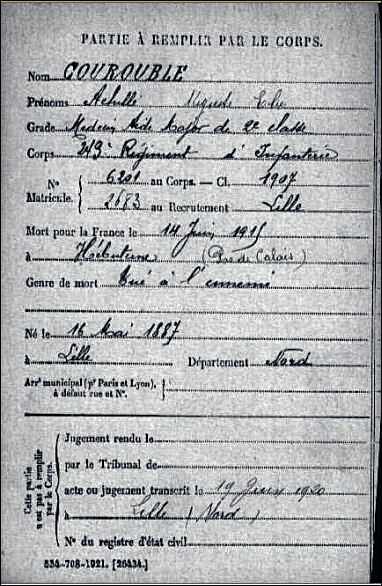 PARTIE À REMPLIR PAR LE CORPS.
Nom COUROUBLE
Prénoms Achille Auguste Elie
Grade Médecin Aide Major de 2e classe
Corps 243e Régiment d'Infanterie
N° Matricule. { 6201 au Corps. — Cl. 1907
2683 au Recrutement Lille
Mort pour la France le 14 Juin 1915
à Hébuterne (Pas de Calais)
Genre de mort Tué à l'ennemi
Né le 16 Mai 1887
à Lille Département Nord
Arrt municipal (pr Paris et Lyon),
à défaut rue et N°.
Cette partie n'est pas à remplir par le Corps.
Jugement rendu le
par le Tribunal de
acte ou jugement transcrit le 19 Juin 1920
à Lille (Nord)
N° du registre d'état civil
534-708-1921. [26434.]